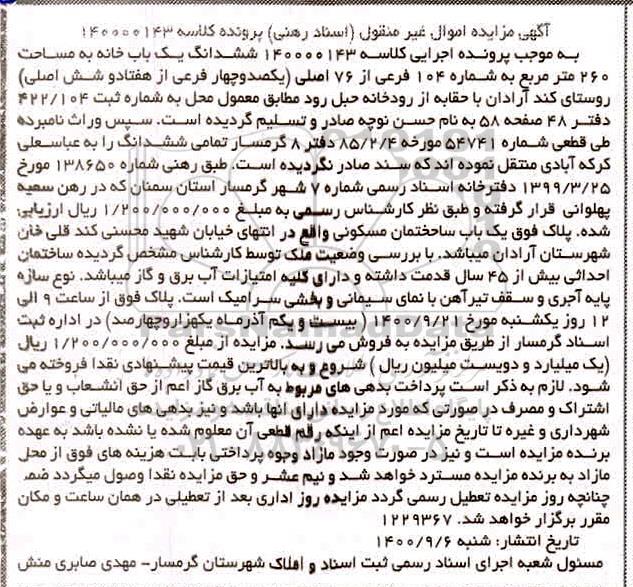 آگهی مزایده اموال غیر منقول (اسناد رهنی) پرونده کلاسه ۱۴۰۰۰۰۱۴۳
به موجب پرونده اجرایی کلاسه ۱۴۰۰۰۰۱۴۳ ششدانگ یک باب خانه به مساحت
۲۶۰ متر مربع به شماره ۱۰۴ فرعی از ۷۶ اصلی (یکصدوچهار فرعی از هفتادو شش اصلی)
روستای کند آرادان با حقابه از رودخانه حبل رود مطابق معمول محل به شماره ثبت ۴۲۲/۱۰۴
دفتر ۴۸ صفحه ۵۸ به نام حسن نوچه صادر و تسلیم گردیده است. سپس وراث نامبرده
طی قطعی شماره ۵۴۷۴۱ مورخه ۸۵/۲/۴ دفتر ۸ گرمسار تمامی ششدانگ را به عباسعلی
کرکه آبادی منتقل نموده اند که سند صادر نگردیده است. طبق رهنی شماره ۱۳۸۶۵۰ مورخ
۱۳۹۹/۳/۲۵ دفترخانه اسناد رسمی شماره ۷ شهر گرمسار استان سمنان که در رهن سمیه
پهلوانی قرار گرفته و طبق نظر کارشناس رسمی به مبلغ ۱/۲۰۰/۰۰۰/۰۰۰ ریال ارزیابی
شده. پلاک فوق یک باب ساختمان مسکونی واقع در انتهای خیابان شهید محسنی کند قلی خان
شهرستان آرادان میباشد. با بررسی وضعیت ملک توسط کارشناس مشخص گردیده ساختمان
احداثی بیش از ۴۵ سال قدمت داشته و دارای کلیه امتیازات آب برق و گاز میباشد. نوع سازه
پایه آجری و سقف تیرآهن با نمای سیمانی و بخشی سرامیک است. پلاک فوق از ساعت ۹ الی
۱۲ روز یکشنبه مورخ ۱۴۰۰/۹/۲۱ (بیست و یکم آذرماه یکهزاروچهارصد) در اداره ثبت
اسناد گرمسار از طریق مزایده به فروش می رسد. مزایده از مبلغ ۱/۲۰۰/۰۰۰/۰۰۰ ریال
(یک میلیارد و دویست میلیون ریال ) شروع و به بالاترین قیمت پیشنهادی نقدا فروخته می
شود. لازم به ذکر است پرداخت بدهی های مربوط به آب برق گاز اعم از حق انشعاب و یا حق
اشتراک و مصرف در صورتی که مورد مزایده دارای آنها باشد و نیز بدهی های مالیاتی و عوارض
شهرداری و غیره تا تاریخ مزایده اعم از اینکه رقم قطعی آن معلوم شده یا نشده باشد به عهده
برنده مزایده است و نیز در صورت وجود مازاد وجوه پرداختی بابت هزینه های فوق از محل
مازاد به برنده مزایده مسترد خواهد شد و نیم عشر و حق مزایده نقدا وصول میگردد ضمنا
چنانچه روز مزایده تعطیل رسمی گردد مزایده روز اداری بعد از تعطیلی در همان ساعت و مکان
مقرر برگزار خواهد شد. ۱۲۲۹۳۶۷
تاریخ انتشار: شنبه ۱۴۰۰/۹/۶
مسئول شعبه اجرای اسناد رسمی ثبت اسناد و املاک شهرستان گرمسار- مهدی صابری منش